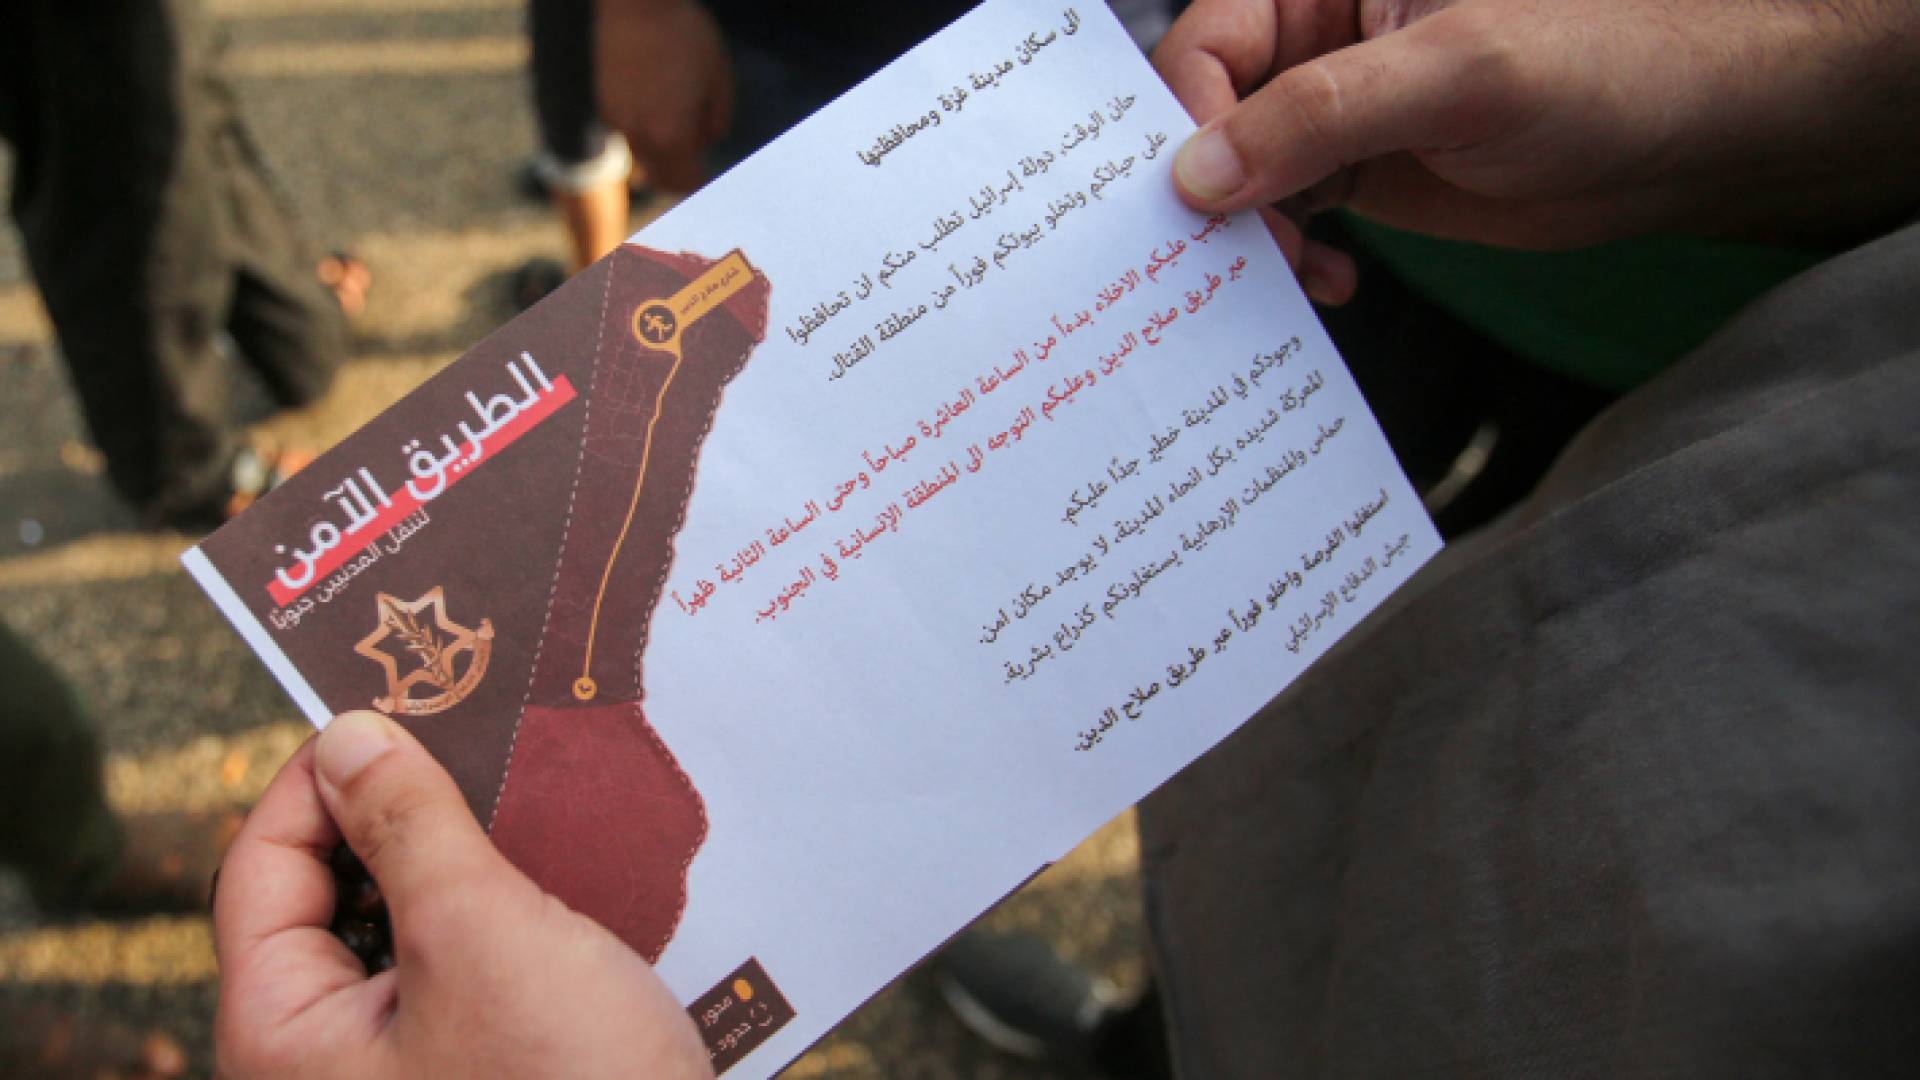 الى سكان مدينة غزة ومحافظتها
حان الوقت، دولة إسرائيل تطلب منكم ان تحافظوا
على حياتكم وتخلو بيوتكم فوراً من منطقة القتال.
يجب عليكم الاخلاء بدءاً من الساعة العاشرة صباحاً وحتى الساعة الثانية ظهراً
عبر طريق صلاح الدين وعليكم التوجه الى المنطقة الإنسانية في الجنوب.
وجودكم في المدينة خطير جدًا عليكم.
المعركة شديده بكل انحاء المدينة، لا يوجد مكان امن.
حماس والمنظمات الإرهابية يستغلونكم كدراع بشرية.
استغلوا الفرصة واخلو فوراً عبر طريق صلاح الدين.
جيش الدفاع الإسرائيلي
الطريق الآمن
لتنقل المدنيين جنوبًا
محور
حدود